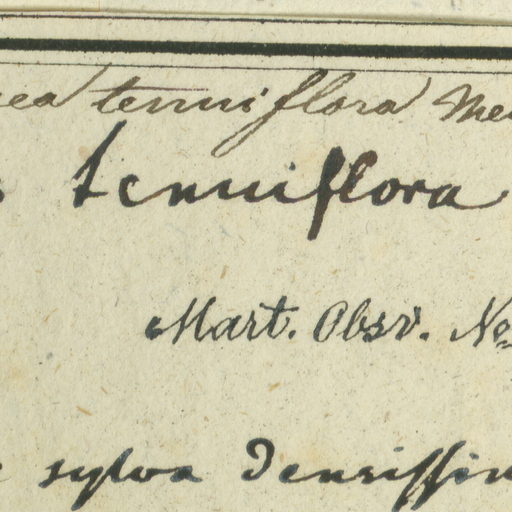 tenuiflora
tenuiflora
Mart. Obsv. No
sylva densissim